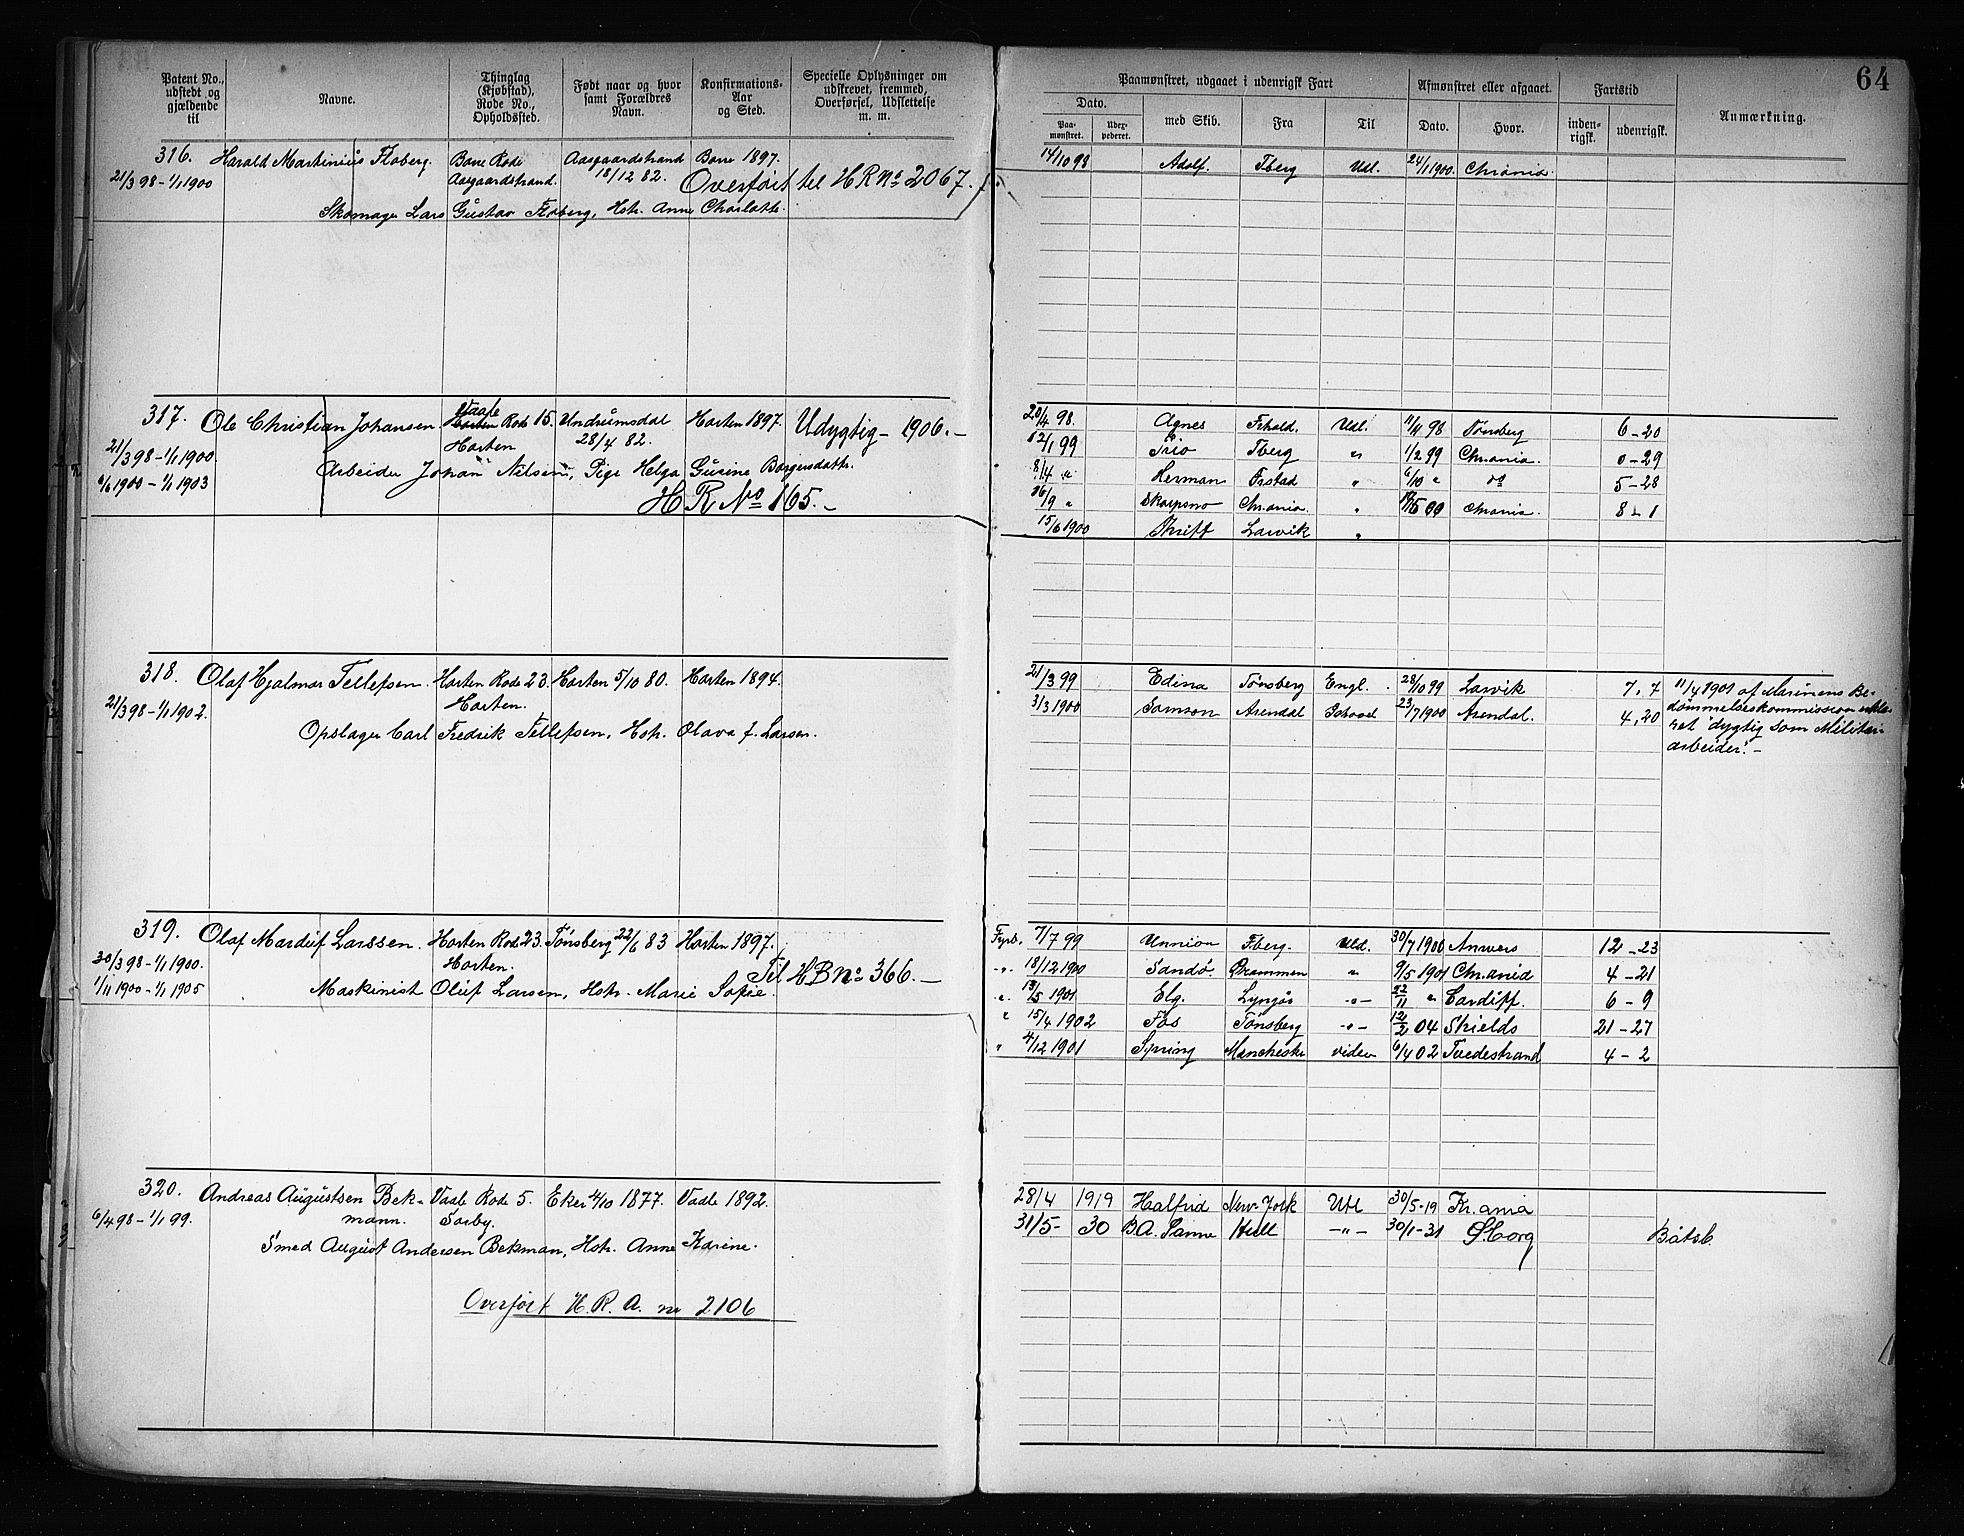 64
Patent No., udstedt og gjældende til
Navne.
Thinglag (Kjøbstad), Rode No., Opholdssted.
Født naar og hvor samt Forældres Navn.
Konfirmations- Aar og Sted.
Specielle Oplysninger om udskrevet, fremmed, Overførsel, Udslettelse m. m.
Paamønstret, udgaaet i udenrigsk Fart
Afmønstret eller afgaaet.
Fartstid
Anmærkning.
Dato.
Paa- mønstret.
med Skib.
Fra
Til
Dato.
Hvor.
inden- rigsk.
udenrigsk.
316. Harald Martinius Floberg. Borre Rode Aasgaardstrand Borre 1897.
21/3 98 - 1/1 1900 Aasgaardstrand. 18/12 82. Overført til HR No 2067.
Skomager Lars Gustav Floberg, Hstr. Anne Charlotte.
14/10 98 Adolf. Tberg Udl. 24/1 1900. Chrania.
317. Ole Christian Johansen. Vaale Horten Rode 15. Undrumsdal Horten 1897. Udygtig - 1906. -
21/3 98 - 1/1 1900. Horten 28/4 82.
1900 - 1/1 1903 Arbeider Johan Nilsen, Pige Helga Gusine Borgersdatter.
H R No 165. -
20/4 98. Agnes Frhald. Udl. 98 Tønsberg 6 - 20
12/1 99 Trio Tberg " 1/2 99 Chrania. 0 - 29
8/4 " Herman Frstad " 6/10 " do 5 - 28
16/9 " Skarpsno Chrania. " 00 Chrania. 8 - 1
15/6 1900 Thrift Larvik "
318. Olaf Hjalmar Tellefsen. Horten Rode 23. Horten 5/10 80. Horten 1894.
21/3 98 - 1/1 1902. Horten.
Opslager Carl Fredrik Tellefsen, Hstr. Olava f. Larsen.
21/3 99 Edina Tønsberg Engl. 28/10 99 Larvik 7, 7 11/4 1901 af Marinens Be-
3/3 1900 Samson Arendal 23/7 1900 Arendal. 4, 20 dømmelseskommission erklæ-
ret "dygtig som Militær-
arbeider". -
319. Olaf Mardif Larssen. Horten Rode 23. Tønsberg 22/6 83 Horten 1897.
30/3 98 - 1/1 1900. Horten. Til HR No 366. -
1/11 1900 - 1/1 1905 Maskinist Oluf Larsen, Hstr. Marie Sofie.
Fyrb. 7/7 99 Unnion Tberg. Udl. 30/7 1900 Anvers 12 - 23
-"- 18/12 1900 Sandø. Drammen " 9/5 1901 Chrania 4 - 21
" 13/5 1901 Elg. Lyngør -"- 22/11 " Cardiff. 6 - 9
" 15/4 1902 Fos Tønsberg -"- 12/2 04 Shields 21 - 27
" 4/12 1901 Spring Manchester viden 6/4 02 Tvedestrand 4 - 2
320. Andreas Augustsen Bek- Vaale Rode 5. Eker 4/10 1877. Vaale 1892.
6/4 98 - 1/1 99. mann. Sørby.
Smed August Andersen Bekman, Hstr. Anne Karine.
Overført H. R. A. nr 2106
28/4 1919 Halfrid New-York Utl 30/5-19 Kr.ania
31/5- 30 B.A. Sanne Hull -"- 30/1-31 S.borg Båtsb.